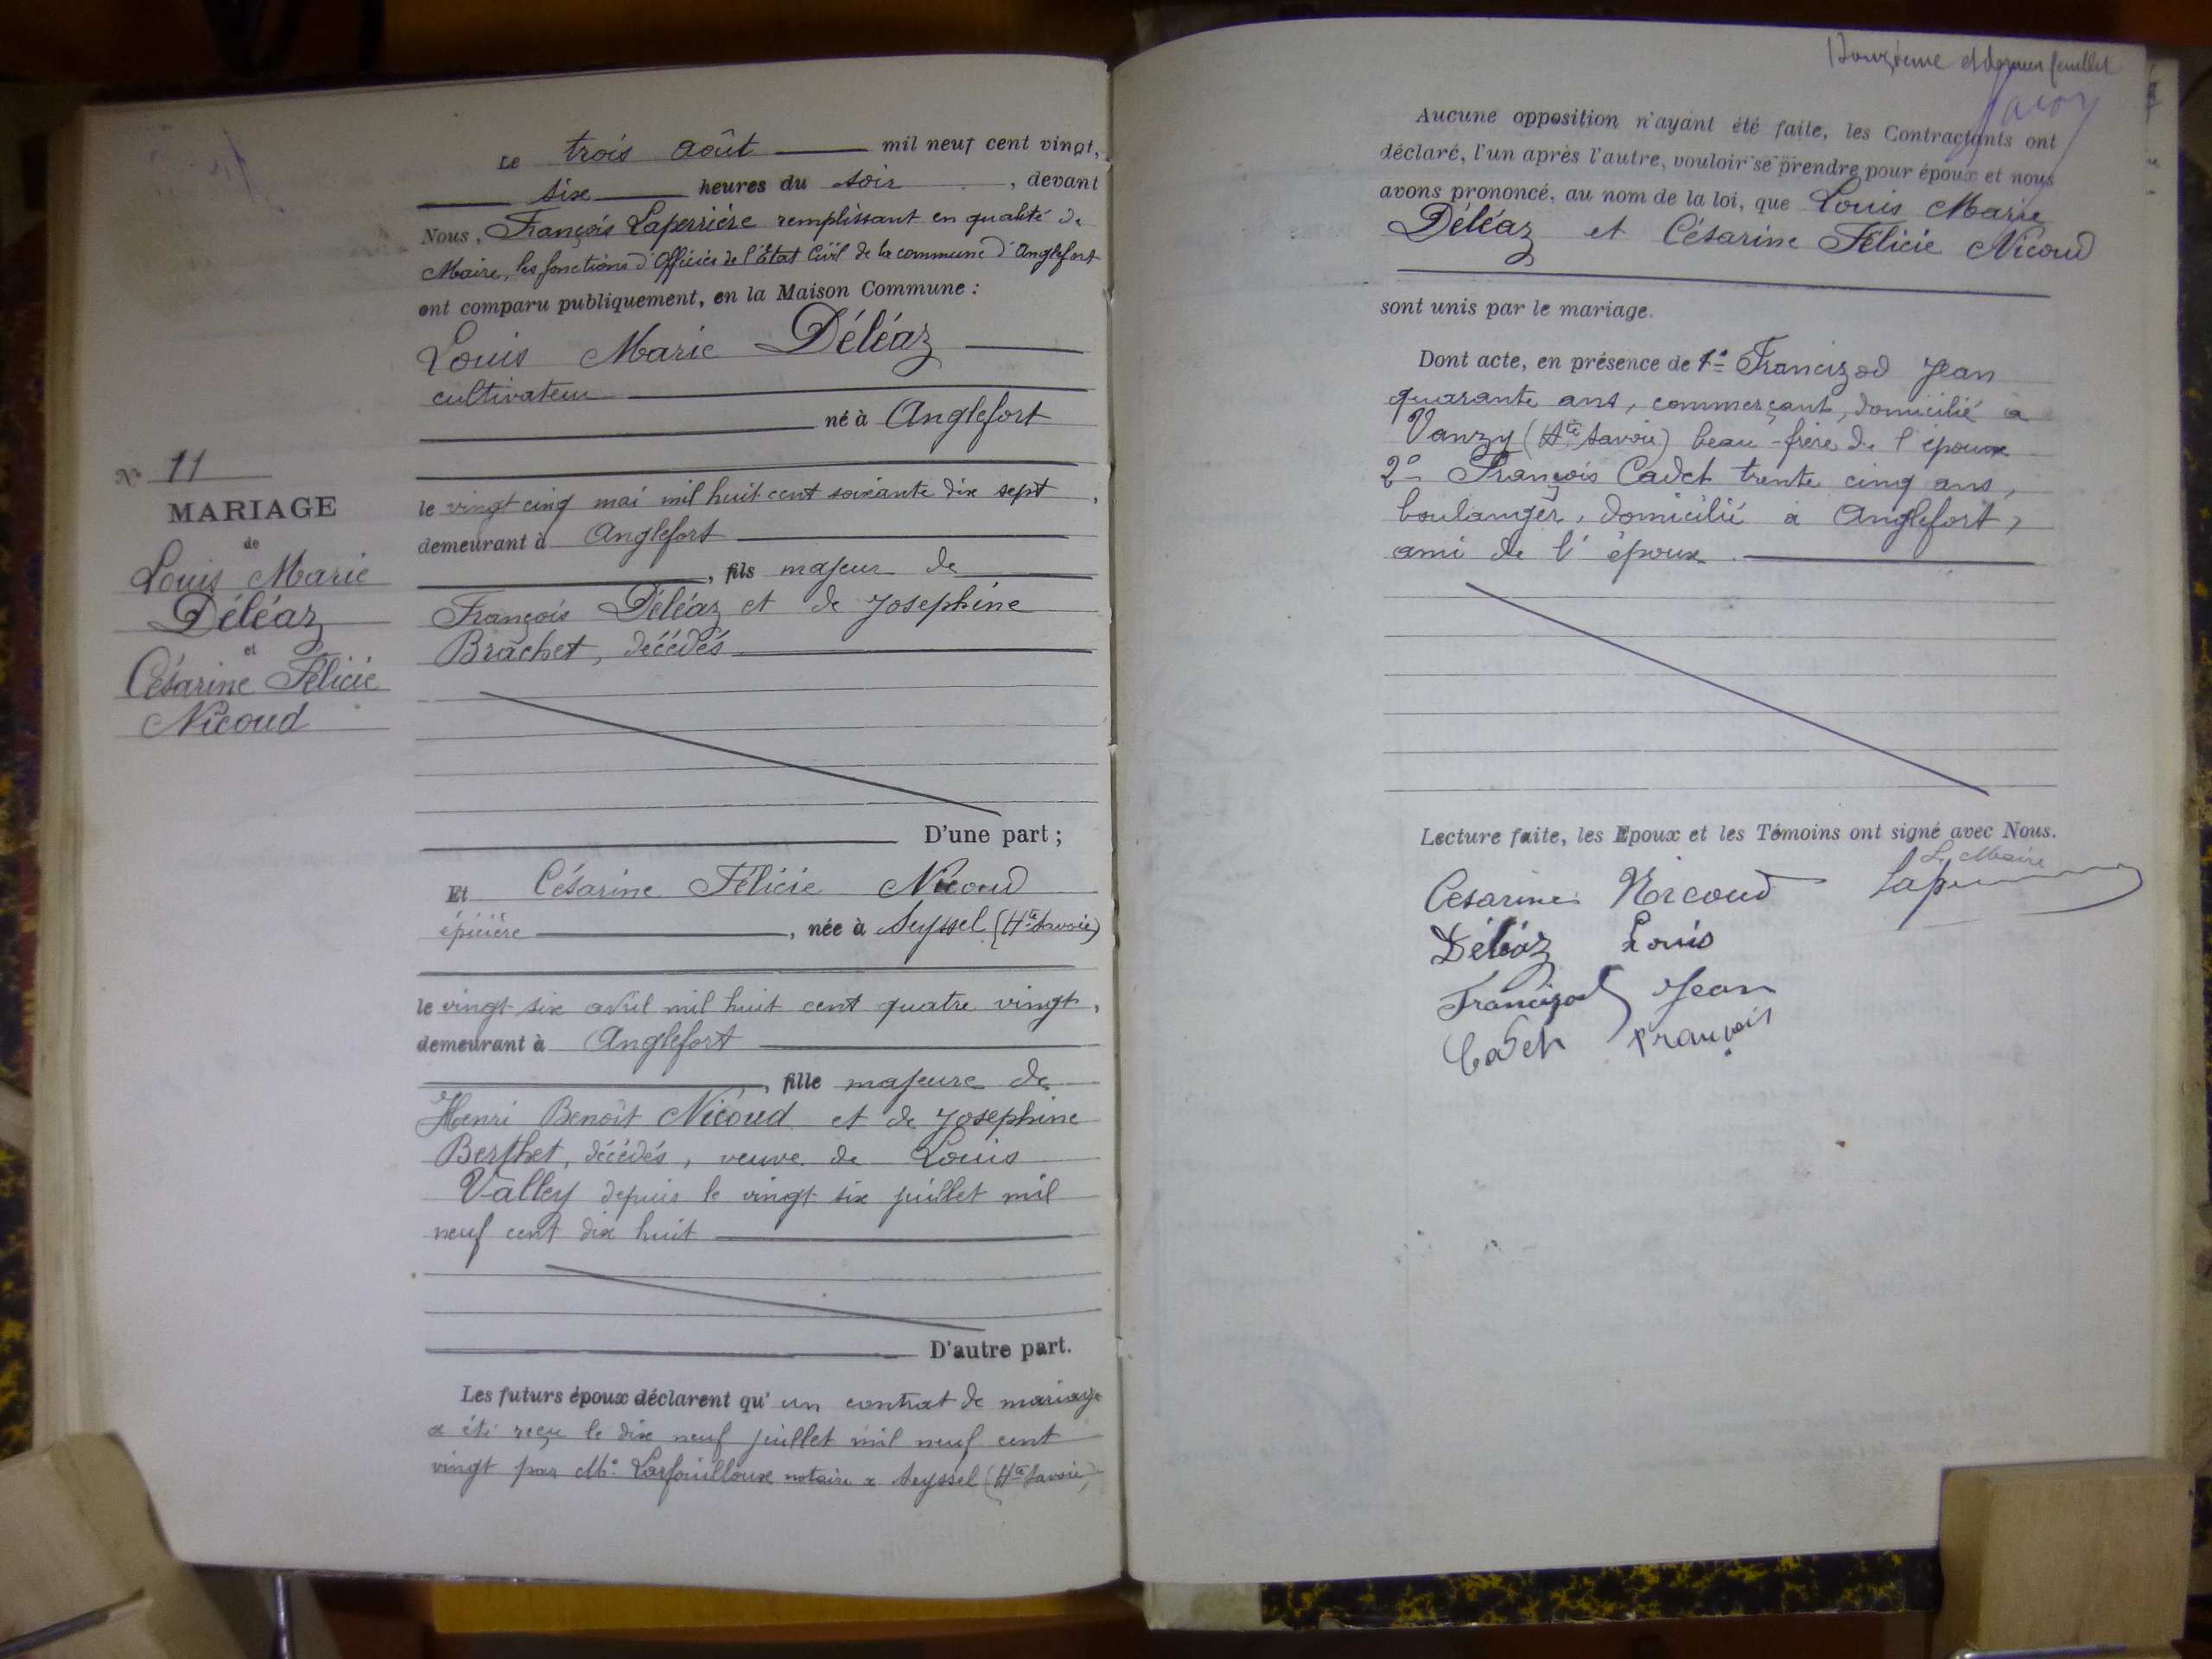 Le trois août mil neuf cent vingt,
six heures du soir , devant
Nous, François Laperrière remplissant en qualité de
Maire, les fonctions d'Officier de l'État Civil de la commune d'Anglefort
ont comparu publiquement, en la Maison Commune :
Louis Marie Déléaz
cultivateur
né à Anglefort
le vingt cinq mai mil huit cent soixante dix sept ,
demeurant à Anglefort
, fils majeur de
François Déléaz et de Josephine
Brachet, décédés
D'une part ;
N° 11
MARIAGE
de
Louis Marie
Déléaz
et
Césarine Félicie
Nicoud
Et Césarine Félicie Nicoud
épicière , née à Seyssel (Hte Savoie)
le vingt six avril mil huit cent quatre vingt ,
demeurant à Anglefort
, fille majeure de
Henri Benoît Nicoud et de Josephine
Berthet, décédés, veuve de Louis
Valley depuis le vingt six juillet mil
neuf cent dix huit
D'autre part.
Les futurs époux déclarent qu' un contrat de mariage
a été reçu le dix neuf juillet mil neuf cent
vingt par Me Lasfouilloux notaire a Seyssel (Hte Savoie)
et dernier feuillet
Aucune opposition n'ayant été faite, les Contractants ont
déclaré, l'un après l'autre, vouloir se prendre pour époux et nous
avons prononcé, au nom de la loi, que Louis Marie
Déléaz et Césarine Félicie Nicoud
sont unis par le mariage.
Dont acte, en présence de 1° Francizod Jean
quarante ans, commerçant, domicilié a
Vanzy (Hte Savoie) beau-frère de l'époux
2° François Cadet trente cinq ans,
boulanger, domicilié a Anglefort,
ami de l'époux.
Lecture faite, les Epoux et les Témoins ont signé avec Nous.
Le Maire
Cesarine Nicoud
Déléaz Louis
Francizod Jean
Cadet François